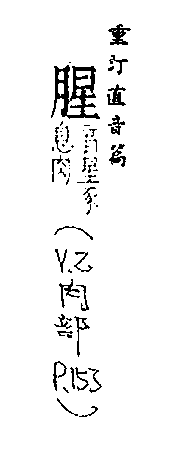 重訂直音篇
腥
音星豕
息肉
(V.乙肉部P.153)